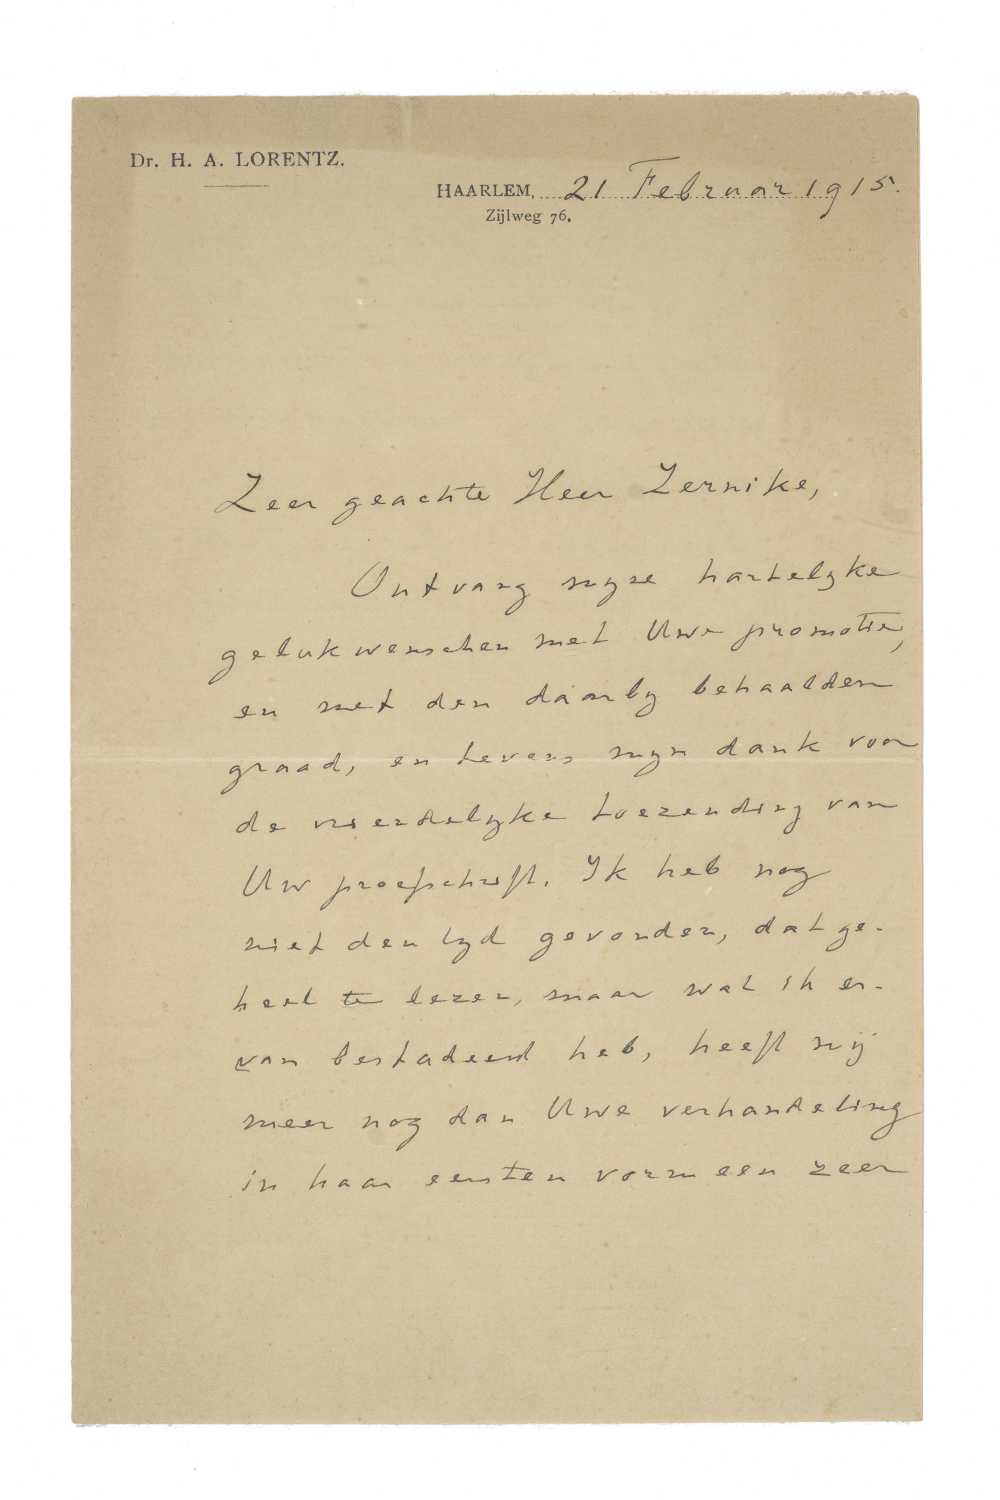 Dr. H. A. LORENTZ.
HAARLEM, 21 Februar 1915.
Zijlweg 76.
Zeer geachte Heer Zernike,
Ontvang mijne hartelijke
gelukwenschen met Uwe promotie,
en met den daarbij behaalden
graad, en tevens mijn dank voor
de vriendelijke toezending van
Uw proefschrift. Ik heb nog
niet den tijd gevonden, dat ge-
heel te lezen, maar wat ik er-
van bestudeerd heb, heeft mij
meer nog dan Uwe verhandeling
in haar eersten vorm een zeer